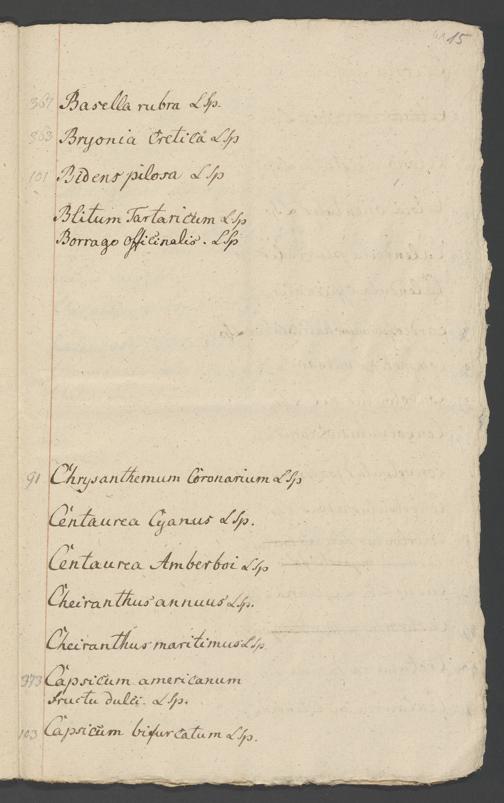 15
367 Basella rubra LSp.
363 Bryonia Cretica LSp
101 Bidens pilosa LSp
Blitum Tartaricum LSp
Borrago officinalis. LSp
91 Chrysanthemum Coronarium LSp
Centaurea Cyanus LSp.
Centaurea Amberboi LSp
Cheiranthus annuus LSp.
Cheiranthus maritimus LSp
373 Capsicum americanum
fructu dulci. LSp.
103 Capsicum bifurcatum LSp.